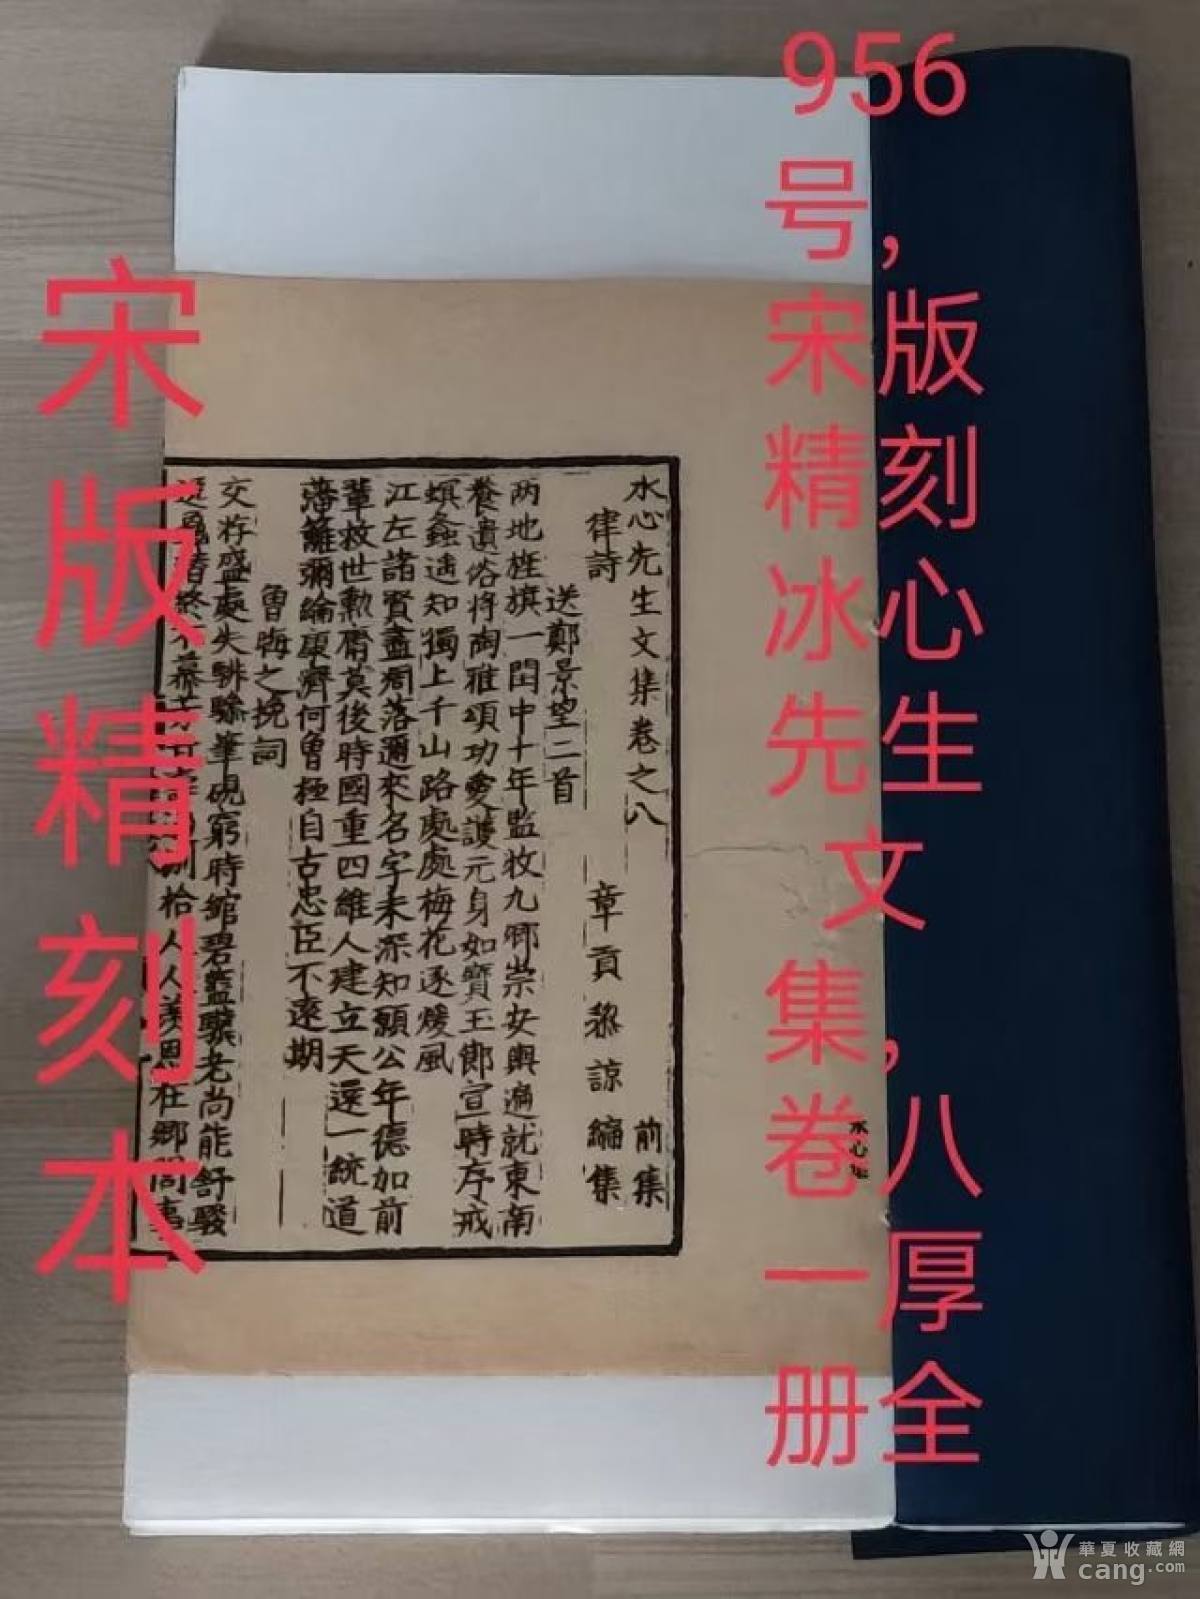 956
号,
宋版
精刻
冰心
先生
文
集,
卷八
一厚
册全
宋版精刻本
水心先生文集卷之八 前集
律詩 章貢黎諒編集
送鄭景望二首
两地旌旗一閏中十年監牧九卿崇安輿遍就東南
養遺俗將陶雅頌功愛護元身如寶玉郎宣時序戒
螟螽遥知獨上千山路處處梅花逐煖風
江左諸賢盡凋落邇來名字未深知願公年德如前
輩救世勳庸莫後時國重四維人建立天還一統道
藩籬彌綸康濟何曾極自古忠臣不遠期
魯晦之挽詞
交游盛處失騑驂筆硯窮時縮碧籃驥老尚能舒駿
拾人人羨恩在鄉閭事
水心集
華夏收藏網
cang.com